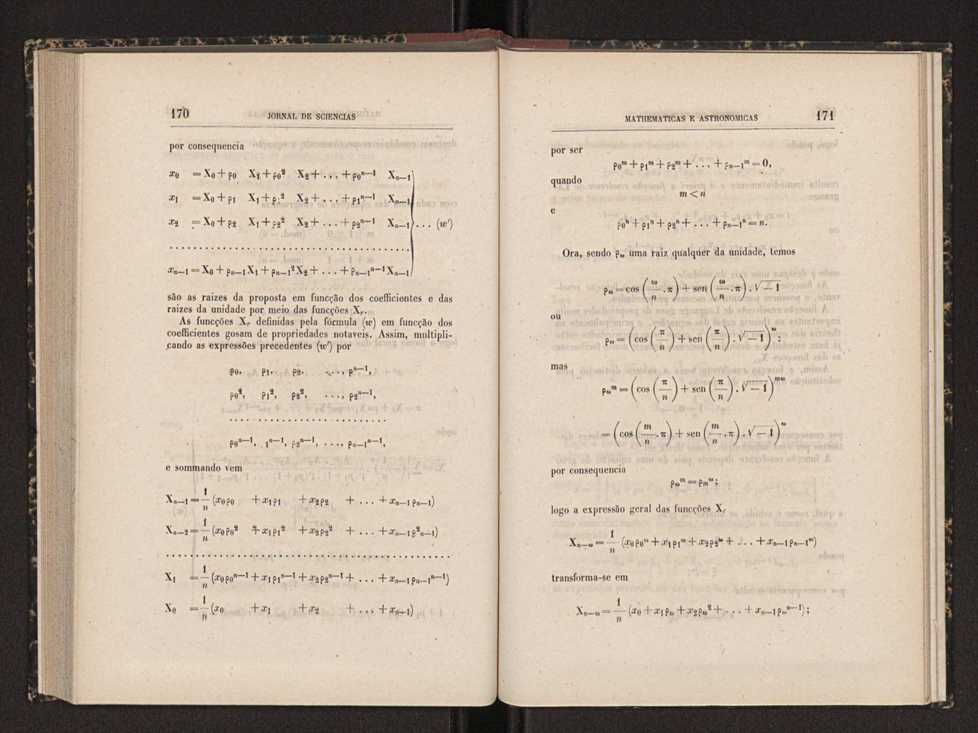 170 JORNAL DE SCIENCIAS
por consequencia
x₀ = X₀ + ρ₀ X₁ + ρ₀² X₂ + . . . + ρ₀ⁿ⁻¹ Xₙ₋₁
x₁ = X₀ + ρ₁ X₁ + ρ₁² X₂ + . . . + ρ₁ⁿ⁻¹ Xₙ₋₁
x₂ = X₀ + ρ₂ X₁ + ρ₂² X₂ + . . . + ρ₂ⁿ⁻¹ Xₙ₋₁ . . . (w′)
. . . . . . . . . . . . . . . . . . . . . . . . . . . . . . . . . . . .
xₙ₋₁ = X₀ + ρₙ₋₁X₁ + ρₙ₋₁²X₂ + . . . + ρₙ₋₁ⁿ⁻¹Xₙ₋₁
são as raizes da proposta em funcção dos coefficientes e das
raizes da unidade por meio das funcções Xᵣ.
As funcções Xᵣ definidas pela fórmula (w) em funcção dos
coefficientes gosam de propriedades notaveis. Assim, multipli-
cando as expressões precedentes (w′) por
ρ₀, ρ₁, ρ₂, . . . , ρⁿ⁻¹,
ρ₀², ρ₁², ρ₂², . . . , ρ²ₙ₋₁,
. . . . . . . . . . . . . . . . . . . . . . .
ρ₀ⁿ⁻¹, ₁ⁿ⁻¹, ρ₂ⁿ⁻¹, . . . , ρₙ₋₁ⁿ⁻¹,
e sommando vem
Xₙ₋₁ = 1/n (x₀ρ₀ + x₁ρ₁ + x₂ρ₂ + . . . + xₙ₋₁ρₙ₋₁)
Xₙ₋₂ = 1/n (x₀ρ₀² + x₁ρ₁² + x₂ρ₂² + . . . + xₙ₋₁ρ²ₙ₋₁)
. . . . . . . . . . . . . . . . . . . . . . . . . . . . . . . . . . . . . . . .
X₁ = 1/n (x₀ρ₀ⁿ⁻¹ + x₁ρ₁ⁿ⁻¹ + x₂ρ₂ⁿ⁻¹ + . . . + xₙ₋₁ρₙ₋₁ⁿ⁻¹)
X₀ = 1/n (x₀ + x₁ + x₂ + . . . + xₙ₋₁)
MATHEMATICAS E ASTRONOMICAS 171
por ser
ρ₀ᵐ + ρ₁ᵐ + ρ₂ᵐ + . . . + ρₙ₋₁ᵐ = 0,
quando
m < n
e
ρ₀ⁿ + ρ₁ⁿ + ρ₂ⁿ + . . . + ρₙ₋₁ⁿ = n.
Ora, sendo ρ_ω uma raiz qualquer da unidade, temos
ρ_ω = cos (ω/n . π) + sen (ω/n . π) . √−1
ou
ρ_ω = (cos (π/n) + sen (π/n) . √−1)^ω ;
mas
ρ_ω^m = (cos (π/n) + sen (π/n) . √−1)^mω
= (cos (m/n . π) + sen (m/n . π) . √−1)^ω
por consequencia
ρ_ω^m = ρ_m^ω ;
logo a expressão geral das funcções Xᵣ
X_n−ω = 1/n (x₀ρ₀^ω + x₁ρ₁^ω + x₂ρ₂^ω + . . . + xₙ₋₁ρₙ₋₁^ω)
transforma-se em
X_n−ω = 1/n (x₀ + x₁ρ_ω + x₂ρ_ω² + . . . + xₙ₋₁ρ_ωⁿ⁻¹) ;